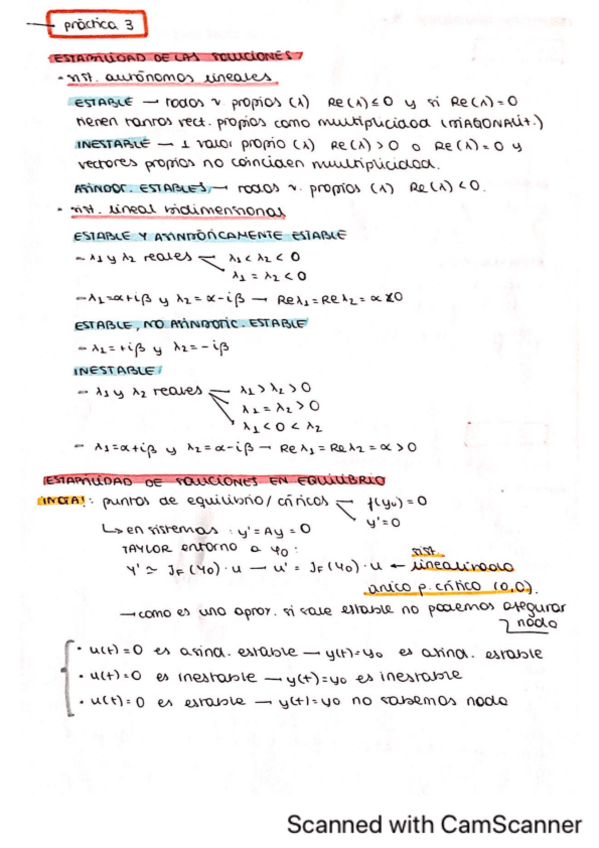 práctica 3
ESTABILIDAD DE LAS SOLUCIONES
• sist. autónomos lineales
ESTABLE → todos v. propios (λ) Re(λ) ≤ 0 y si Re(λ) = 0
tienen tantos vect. propios como multiplicidad (DIAGONALIT.)
INESTABLE → 1 valor propio (λ) Re(λ) > 0 o Re(λ) = 0 y
vectores propios no coinciden multiplicidad.
ASINDOT. ESTABLES → todos v. propios (λ) Re(λ) < 0.
• sist. lineal bidimensional
ESTABLE Y ASINDÓTICAMENTE ESTABLE
- λ1 y λ2 reales λ1 < λ2 < 0
λ1 = λ2 < 0
- λ1 = α+iβ y λ2 = α-iβ → Reλ1 = Reλ2 = α < 0
ESTABLE, NO ASINDOTIC. ESTABLE
- λ1 = +iβ y λ2 = -iβ
INESTABLE
- λ1 y λ2 reales λ1 > λ2 > 0
λ1 = λ2 > 0
λ1 < 0 < λ2
- λ1 = α+iβ y λ2 = α-iβ → Reλ1 = Reλ2 = α > 0
ESTABILIDAD DE SOLUCIONES EN EQUILIBRIO
: puntos de equilibrio / críticos f(y0) = 0
y' = 0
↳ en sistemas : y' = Ay = 0
TAYLOR entorno a y0 :
Y' ≃ JF(y0) · u → u' = JF(y0) · u ← sist.
linealizado
único p. crítico (0,0).
→ como es una aprox. si sale estable no podemos asegurar
nada
• u(t) = 0 es asind. estable → y(t) = y0 es asind. estable
• u(t) = 0 es inestable → y(t) = y0 es inestable
• u(t) = 0 es estable → y(t) = y0 no sabemos nada
Scanned with CamScanner